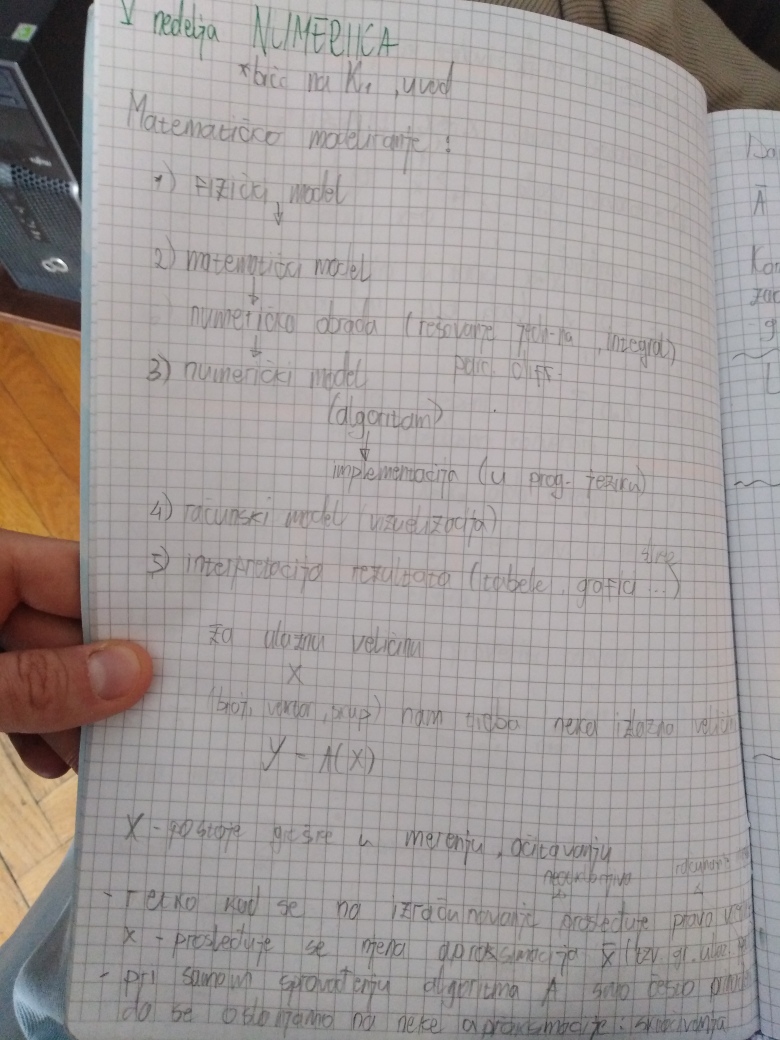 V nedelja NUMERIČKA
*biće na K1, uvod
Matematičko modeliranje:
1) FIZIČKI model
↓
2) matematički model
↓
numerička obrada (rešavanje jedn-na, integral)
parc. diff.
↓
3) numerički model
(algoritam)
↓
implementacija (u prog. jeziku)
4) računski model (vizuelizacija)
5) interpretacija rezultata (tabele, grafici ...)
za ulaznu veličinu
X
(broj, vektor, skup) nam treba neka izlazna
Y = A(X)
X - postoje greške u merenju, očitavanju
- retko kad se na izračunavanje prosleđuje pravo
X - prosleđuje se njena aproksimacija X̄ (tzv. gr.
- pri samom sprovođenju algoritma A smo često
da se oslonjamo na neke aproksimacije: skraćivanja
Ā